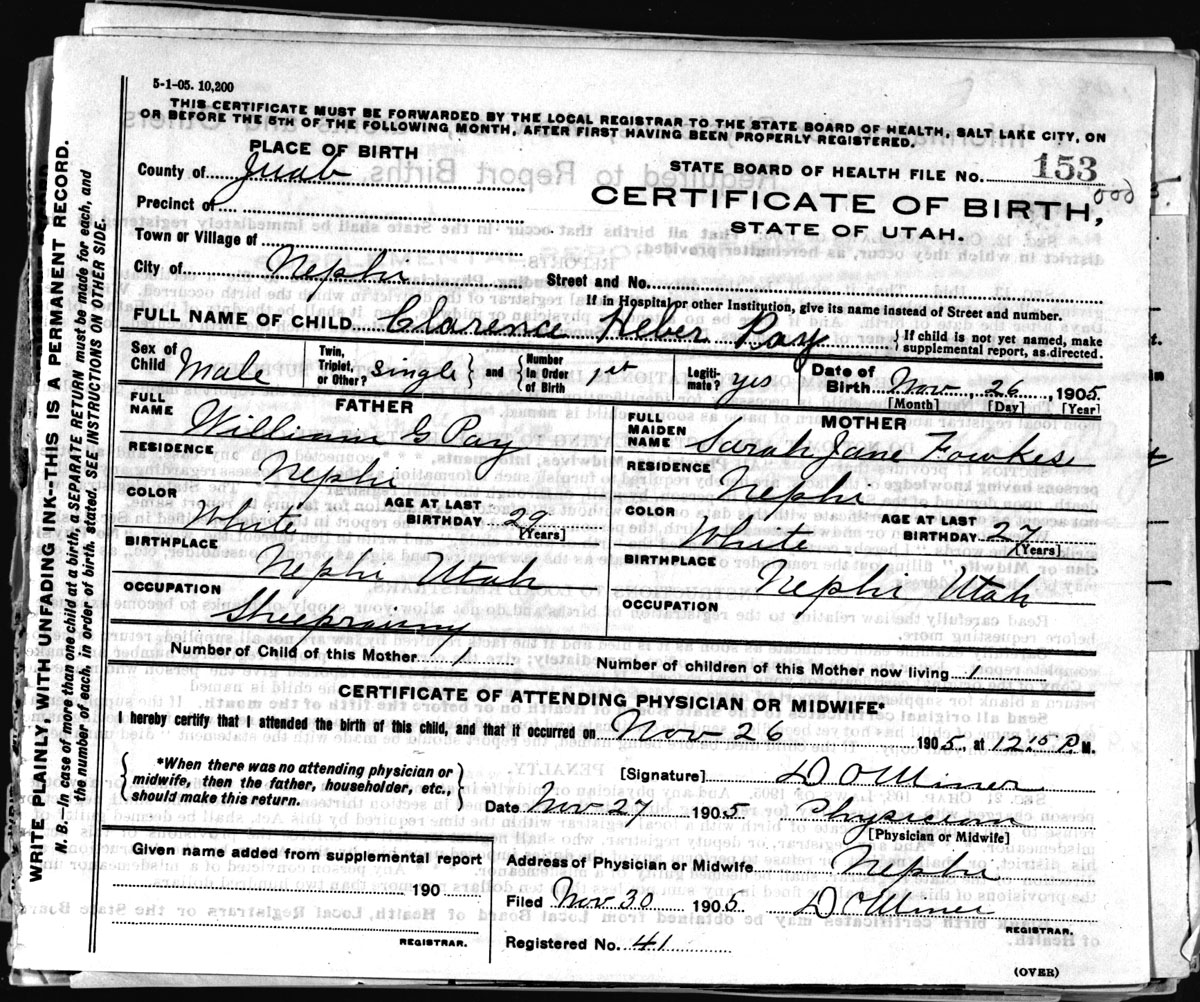 5-1-05. 10,200
THIS CERTIFICATE MUST BE FORWARDED BY THE LOCAL REGISTRAR TO THE STATE BOARD OF HEALTH, SALT LAKE CITY, ON
OR BEFORE THE 5TH OF THE FOLLOWING MONTH, AFTER FIRST HAVING BEEN PROPERLY REGISTERED.
PLACE OF BIRTH
County of Juab
Precinct of
Town or Village of
City of Nephi
STATE BOARD OF HEALTH FILE NO. 153
CERTIFICATE OF BIRTH,
STATE OF UTAH.
Street and No.
If in Hospital or other Institution, give its name instead of Street and number.
FULL NAME OF CHILD Clarence Heber Pay { If child is not yet named, make
supplemental report, as directed.
Sex of Child Male
Twin, Triplet, or Other? single } and { Number in Order of Birth 1st
Legitimate? yes
Date of Birth Nov 26, 1905
[Month] [Day] [Year]
FATHER
FULL NAME William G Pay
RESIDENCE Nephi
COLOR White AGE AT LAST BIRTHDAY 29
[Years]
BIRTHPLACE Nephi Utah
OCCUPATION
MOTHER
FULL MAIDEN NAME Sarah Jane Fowkes
RESIDENCE Nephi
COLOR White AGE AT LAST BIRTHDAY 27
[Years]
BIRTHPLACE Nephi Utah
OCCUPATION
Number of Child of this Mother 1 Number of children of this Mother now living 1
CERTIFICATE OF ATTENDING PHYSICIAN OR MIDWIFE*
I hereby certify that I attended the birth of this child, and that it occurred on Nov 26 1905, at 12 15 P. M.
{ *When there was no attending physician or
midwife, then the father, householder, etc.,
should make this return. }
[Signature] D O Miner
Date Nov 27 1905 Physician
[Physician or Midwife]
Given name added from supplemental report
190
REGISTRAR.
Address of Physician or Midwife Nephi
Filed Nov 30 1905 D O Miner
REGISTRAR.
Registered No. 41
(OVER)
WRITE PLAINLY WITH UNFADING INK--THIS IS A PERMANENT RECORD.
N. B.—In case of more than one child at a birth, a SEPARATE RETURN must be made for each, and
the number of each, in order of birth, stated. SEE INSTRUCTIONS ON OTHER SIDE.